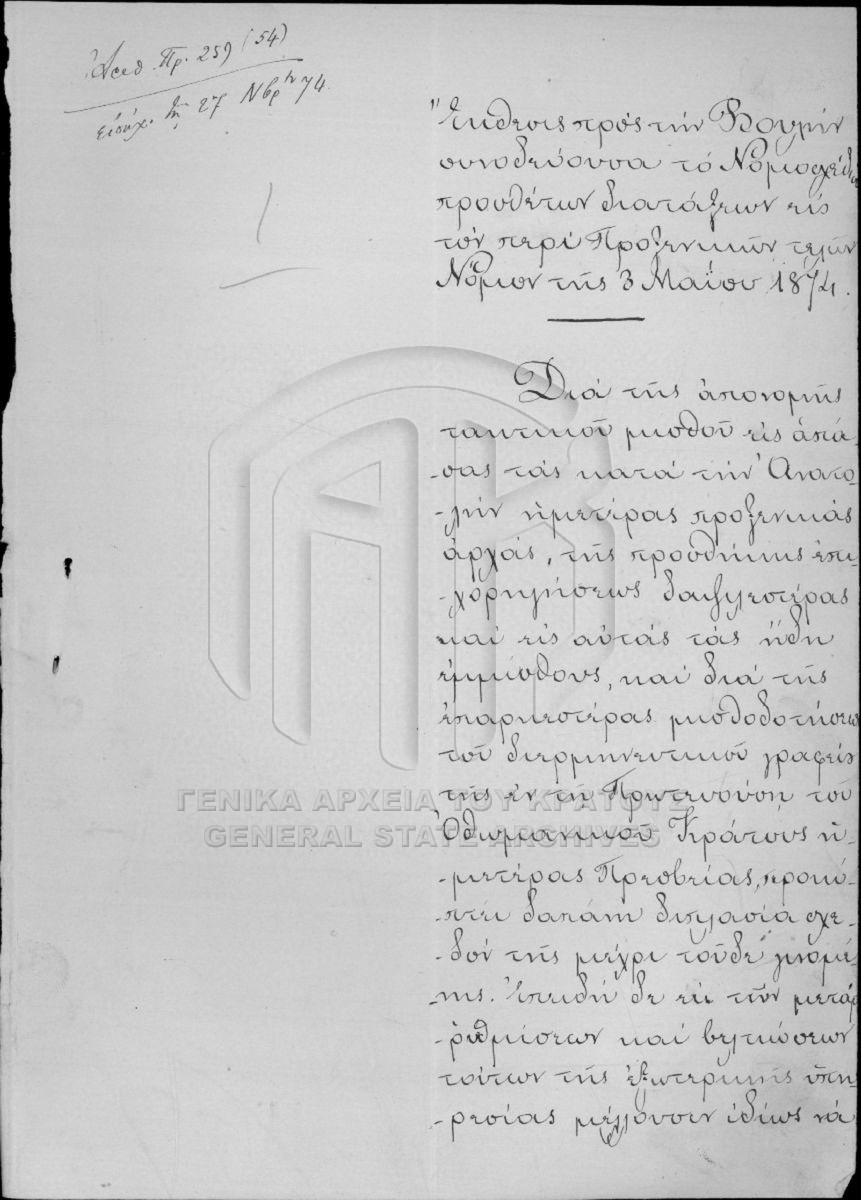 Ἀριθ. Πρ. 259 (54)
εἰσήχ. τῇ 27 Νβρ 74
Ἔκθεσις πρὸς τὴν Βουλὴν
συνοδεύουσα τό Νομοσχέδιον
προσθέτων διατάξεων εἰς
τόν περί Προξενικῶν τελῶν
Νόμον τῆς 3 Μαΐου 1874.
Διά τῆς ἀπονομῆς
τακτικοῦ μισθοῦ εἰς ἁπά-
-σας τάς κατά τήν Ἀνατο-
-λήν ἡμετέρας προξενικάς
ἀρχάς, τῆς προσθήκης ἐπι-
-χορηγήσεως δαψιλεστέρας
καί εἰς αὐτάς τάς ἤδη
ἐμμίσθους, καί διά τῆς
ἐπαρκεστέρας μισθοδοτήσεως
τοῦ διερμηνευτικοῦ γραφείου
τῆς ἐν τῇ Πρωτευούσῃ τοῦ
Ὀθωμανικοῦ Κράτους ἡ-
-μετέρας Πρεσβείας, προκύ-
-πτει δαπάνη διπλασία σχε-
-δόν τῆς μέχρι τοῦδε γινομέ-
-νης. Ἐπειδή δέ ἐκ τῶν μεταρ-
-ρυθμίσεων καί βελτιώσεων
τούτων τῆς ἐξωτερικῆς ὑπη-
-ρεσίας μέλλουσιν ἰδίως νά
ΓΕΝΙΚΑ ΑΡΧΕΙΑ ΤΟΥ ΚΡΑΤΟΥΣ
GENERAL STATE ARCHIVES